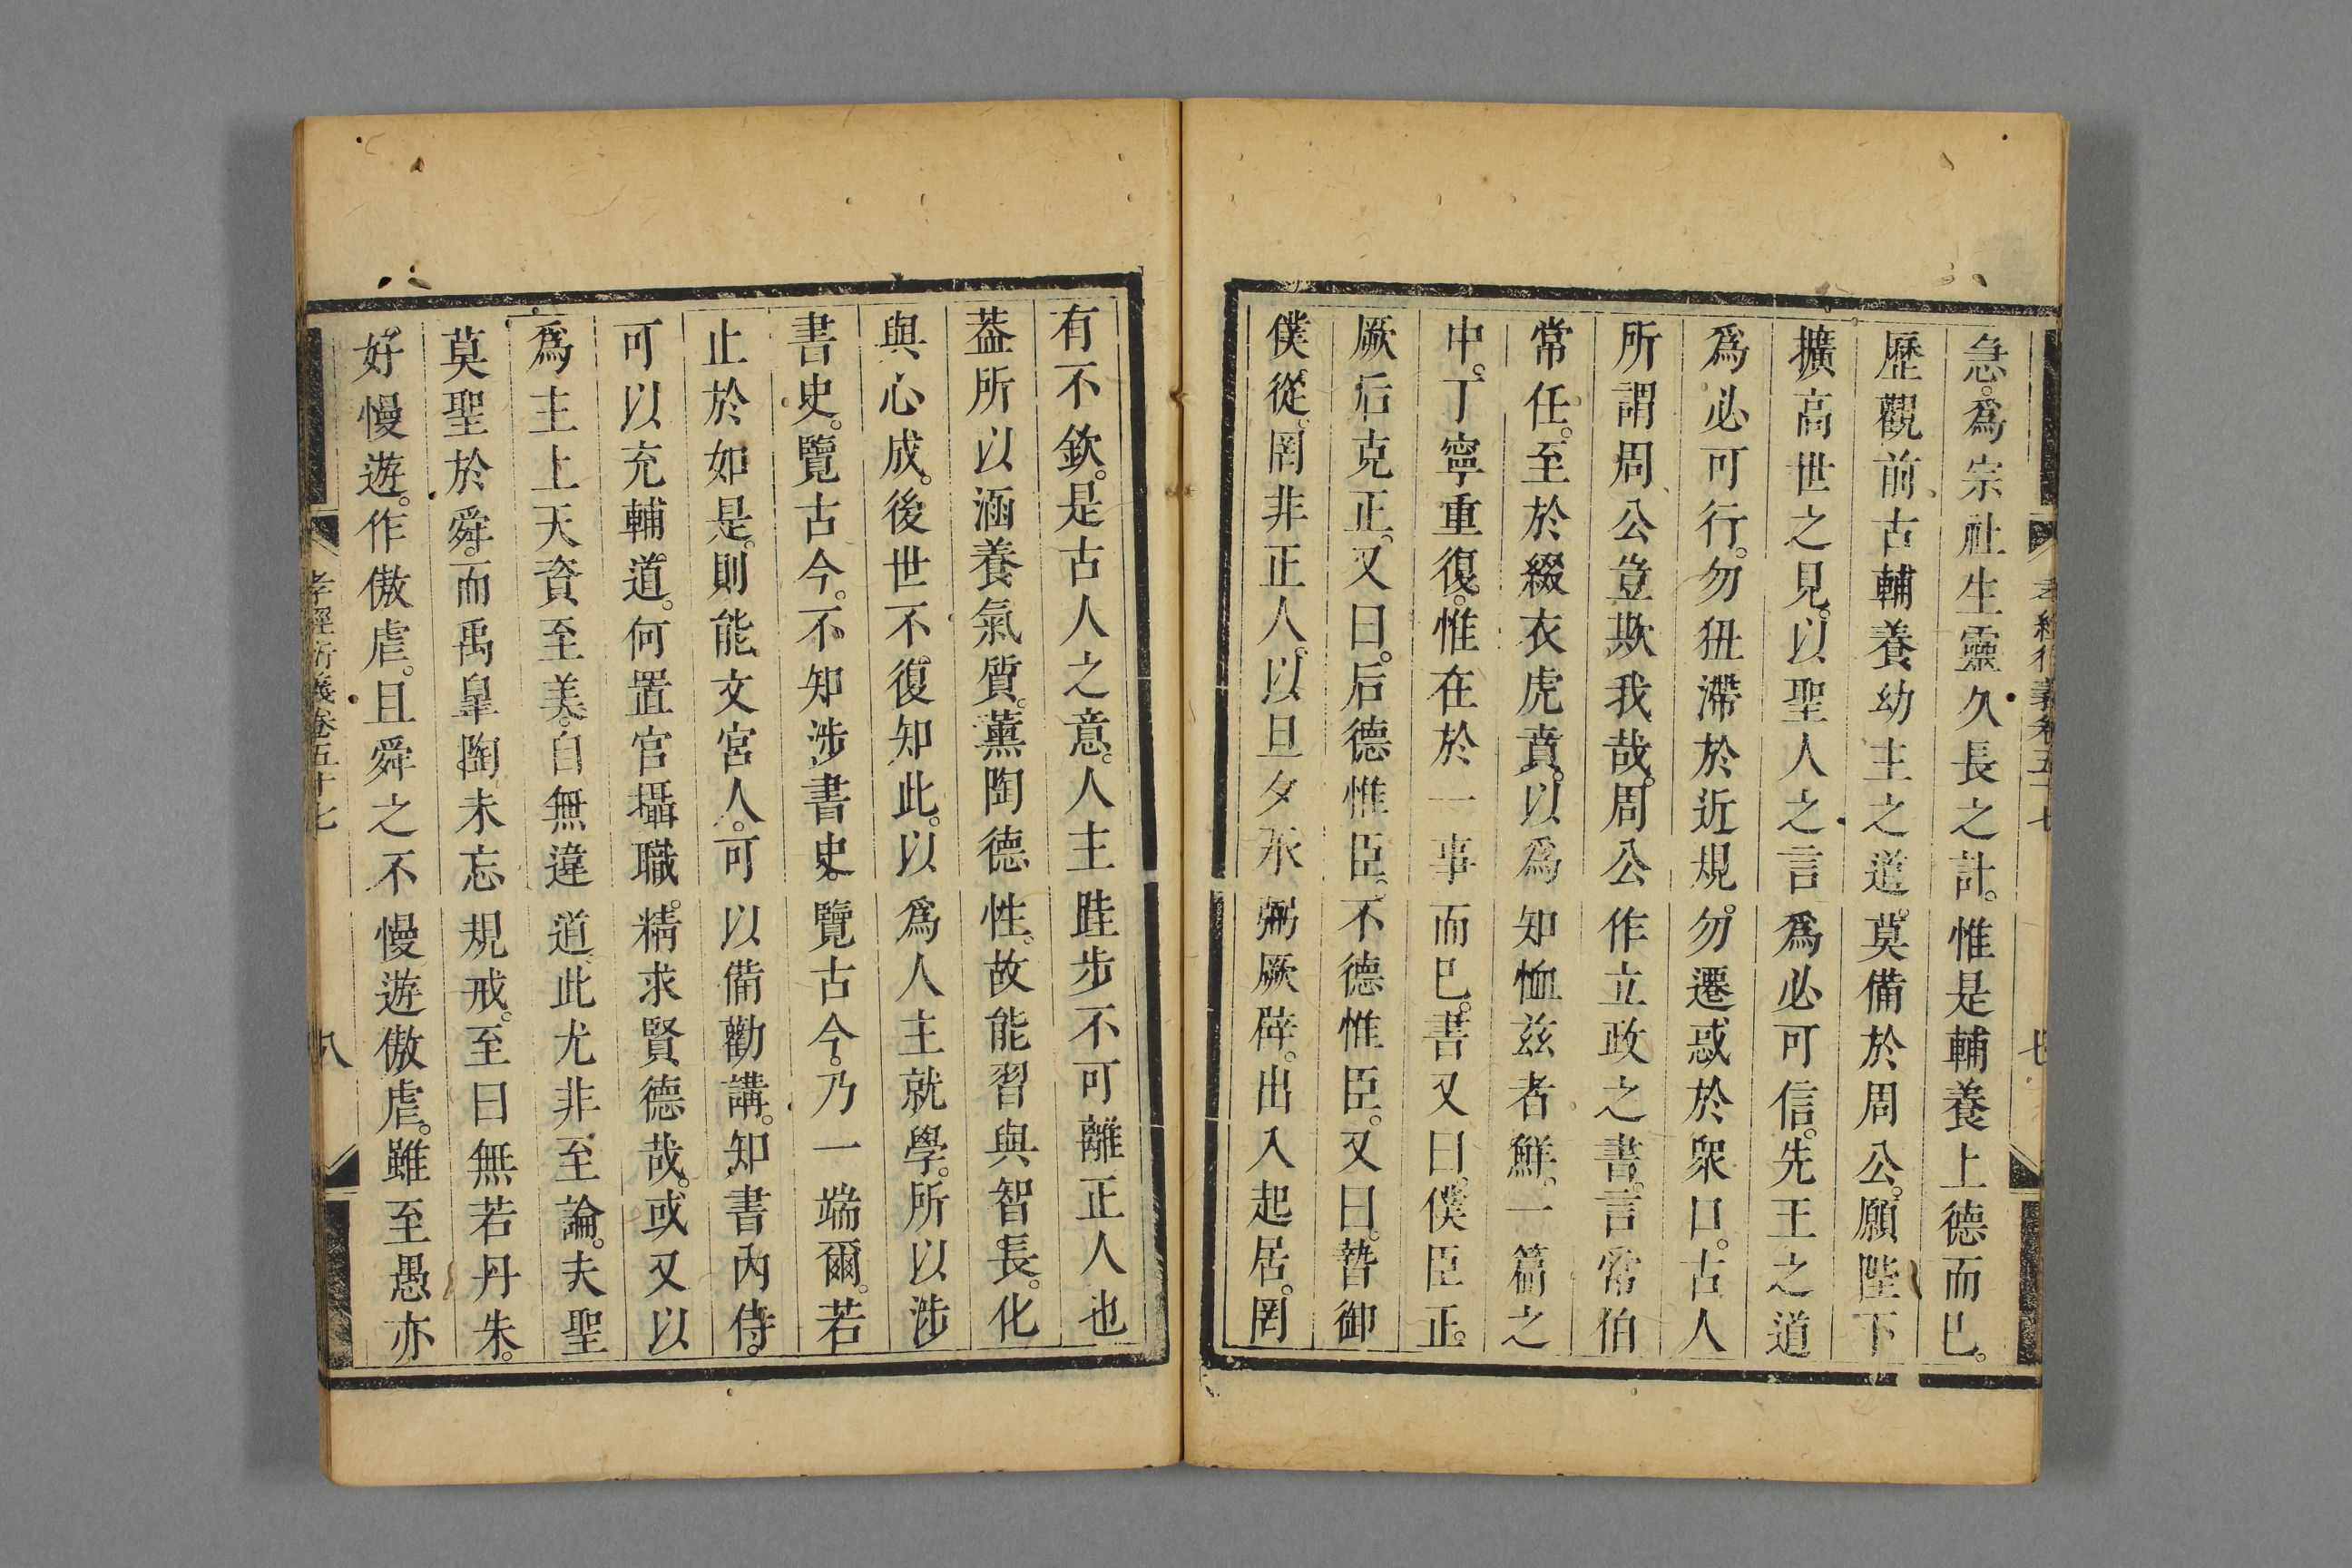 急。為宗社生靈久長之計。惟是輔養上德而已。
歷觀前古輔養幼主之道。莫備於周公。願陛下
擴高世之見。以聖人之言為必可信。先王之道
為必可行。勿狃滯於近規。勿遷惑於衆口。古人
所謂周公豈欺我哉。周公作立政之書。言常伯
常任。至於綴衣虎賁。以為知恤茲者鮮。一篇之
中。丁寧重復。惟在於一事而已。書又曰。僕臣正。
厥后克正。又曰。后德惟臣。不德惟臣。又曰。暬御
僕從。罔非正人。以旦夕承弼厥辟。出入起居。罔
有不欽。是古人之意。人主跬步不可離正人也
葢所以涵養氣質。薰陶德性。故能習與智長。化
與心成。後世不復知此。以為人主就學。所以涉
書史。覽古今。不知涉書史。覽古今。乃一端爾。若
止於如是。則能文宮人。可以備勸講。知書內侍。
可以充輔道。何置官攝職。精求賢德哉。或又以
為主上天資至美。自無違道。此尤非至論。夫聖
莫聖於舜。而禹皐陶未忘規戒。至曰無若丹朱。
好慢遊。作傲虐。且舜之不慢遊傲虐。雖至愚亦
孝經衍義卷五十七
八